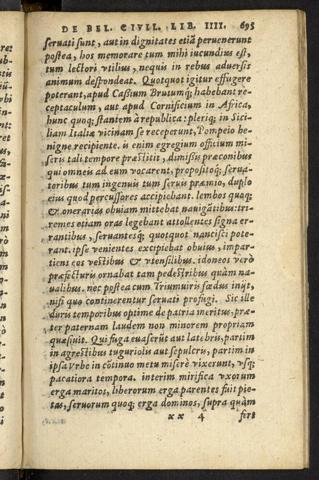 DE BEL. CIVIL. LIB. IIII. 695
seruati sunt, aut in dignitates etiã peruenerunt
postea, hos memorare tum mihi iucundius est,
tum lectori vtilius, nequis in rebus aduersis
animum despondeat. Quotquot igitur effugere
poterant, apud Cassium Brutumq; habebant re-
ceptaculum, aut apud Cornificium in Africa,
hunc quoq; stantem à republica: pleriq; in Sici-
liam Italiæ vicinam se receperunt, Pompeio be-
nigne recipiente. is enim egregium officium mi-
seris tali tempore præstitit, dimissis præconibus
qui omneis ad eum vocarent, propositoq; serua-
toribus tum ingenuis tum seruis præmio, duplo
eius quod percussores accipiebant. lembos quoq;
& onerarias obuiam mittebat nauigãtibus: tri-
remes etiam oras legebant attollentes signa er-
rantibus, seruantesq; quotquot nancisci pote-
rant. ipse venientes excipiebat obuius, impar-
tiens eos vestibus & vtensilibus. idoneos verò
præfecturis ornabat tam pedestribus quàm na-
ualibus. nec postea cum Triumuiris fœdus inijt,
nisi quo continerentur seruati profugi. Sic ille
duris temporibus optime de patria meritus, præ-
ter paternam laudem non minorem propriam
quæsiuit. Qui fuga euaserũt aut latebris, partim
in agrestibus tuguriolis aut sepulcris, partim in
ipsa vrbe in cõtinuo metu miserè vixerunt, vsq;
pacatiora tempora. interim mirifica vxorum
erga maritos, liberorum erga parentes fuit pie-
tas, seruorum quoq; erga dominos, supra quàm
xx 4 fert